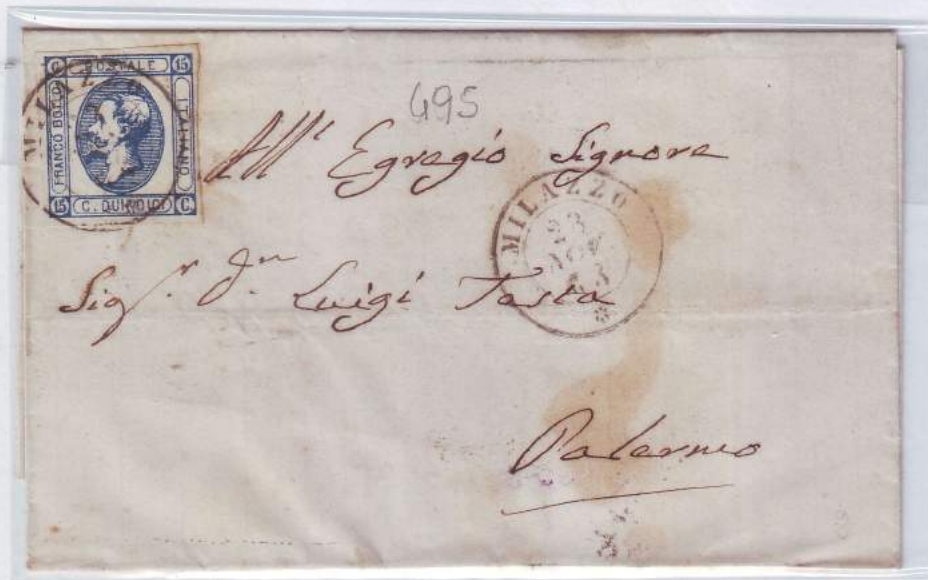 C POSTALE 15
FRANCO BOLLO
ITALIANO
15 C. QUINDICI C
MILAZZO
495
All' Egregio Signore
MILAZZO
23
NOV
63
Sigr. Dn Luigi Tasca
Palermo